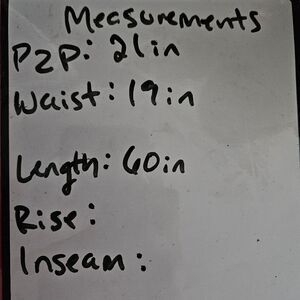 Measurements
P2P: 21in
Waist: 19in
Length: 60in
Rise:
Inseam: